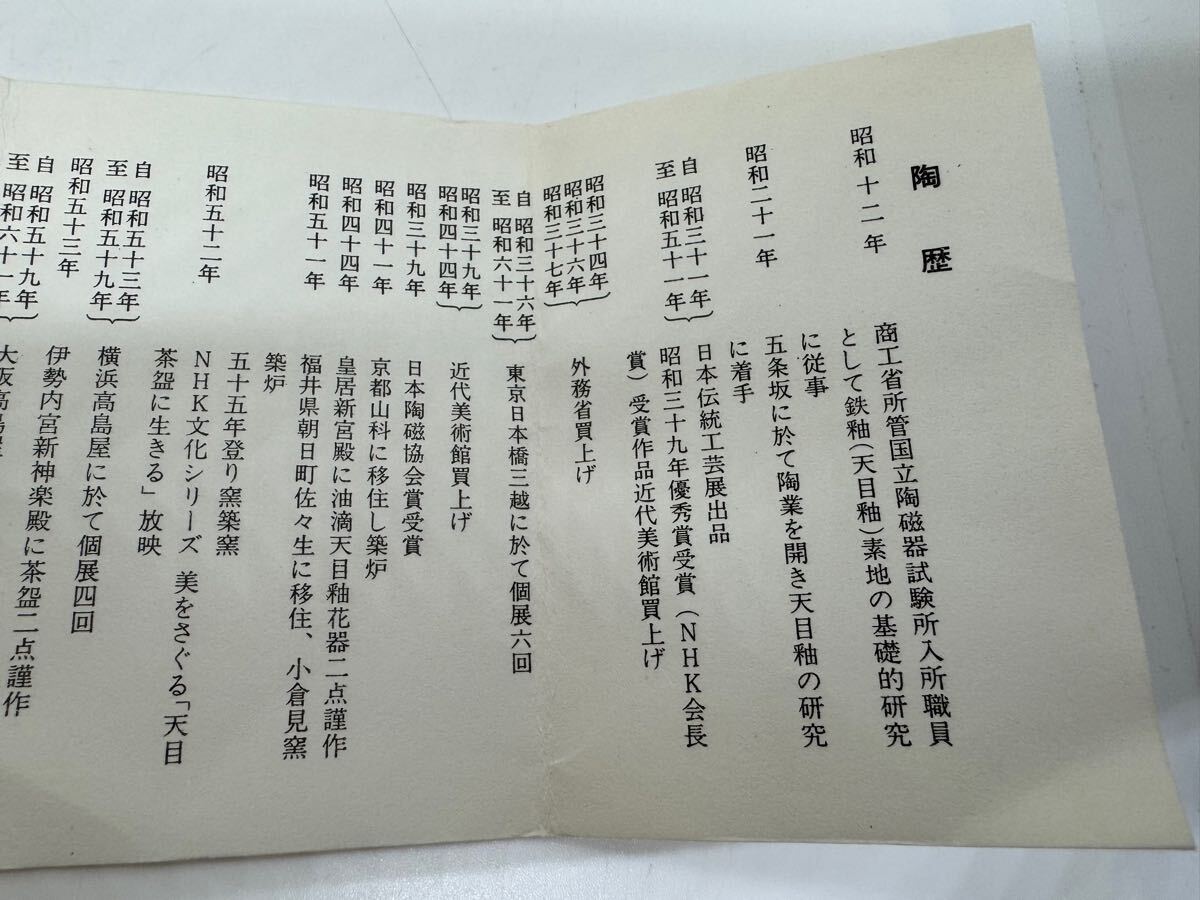 陶歴
昭和十二年
商工省所管国立陶磁器試験所入所職員
として鉄釉(天目釉)素地の基礎的研究
に従事
昭和二十一年
五条坂に於て陶業を開き天目釉の研究
に着手
自 昭和三十一年
至 昭和五十一年
日本伝統工芸展出品
昭和三十九年優秀賞受賞(NHK会長
賞)受賞作品近代美術館買上げ
昭和三十四年
昭和三十六年
昭和三十七年
外務省買上げ
自 昭和三十六年
至 昭和六十一年
東京日本橋三越に於て個展六回
昭和三十九年
昭和四十四年
近代美術館買上げ
昭和三十九年
日本陶磁協会賞受賞
昭和四十一年
京都山科に移住し築炉
昭和四十四年
皇居新宮殿に油滴天目釉花器二点謹作
昭和五十一年
福井県朝日町佐々生に移住、小倉見窯
築炉
五十五年登り窯築窯
昭和五十二年
NHK文化シリーズ 美をさぐる「天目
茶盌に生きる」放映
自 昭和五十三年
至 昭和五十九年
横浜高島屋に於て個展四回
昭和五十三年
伊勢内宮新神楽殿に茶盌二点謹作
自 昭和五十九年
至 昭和六十一年
大阪高島屋